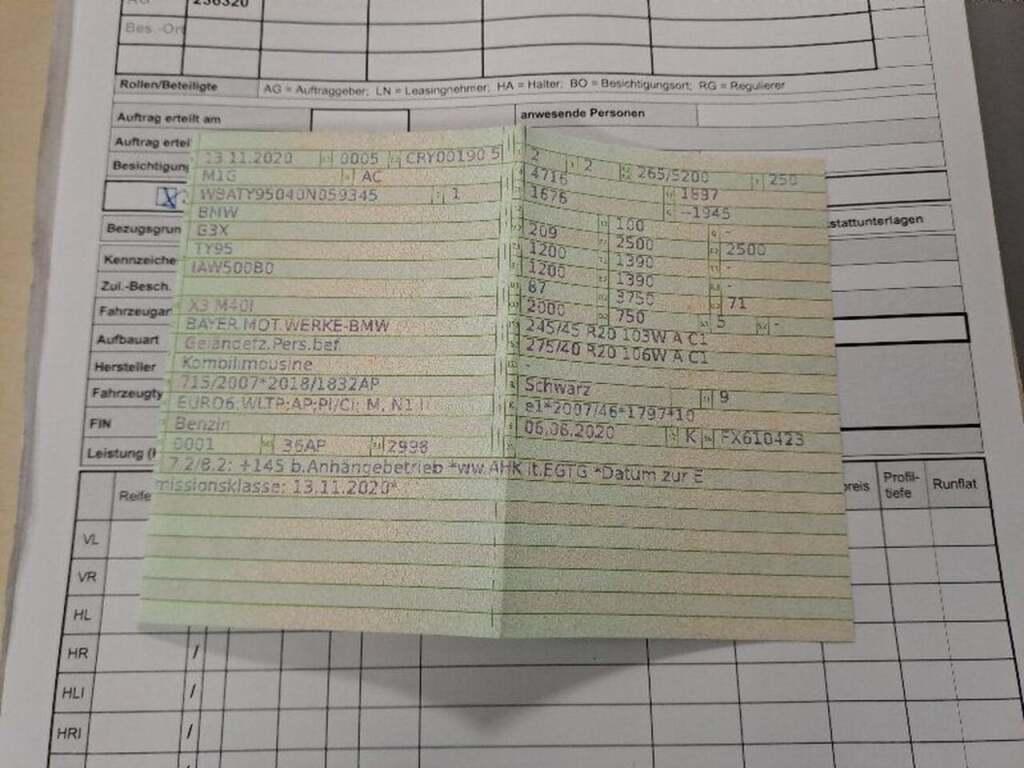 236320
Bes.-Ort
Rollen/Beteiligte AG = Auftraggeber; LN = Leasingnehmer; HA = Halter; BO = Besichtigungsort; RG = Regulierer
Auftrag erteilt am anwesende Personen
Auftrag erteil
Besichtigung
Bezugsgrun stattunterlagen
Kennzeiche
Zul.-Besch.
Fahrzeugar
Aufbauart
Hersteller
Fahrzeugty
FIN
Leistung (
Reife preis Profil-
tiefe Runflat
VL
VR
HL
HR /
HLI /
HRI /
13.11.2020 0005 CRY00190 5
M1G AC
WBATY95040N059345 1
BMW
G3X
TY95
IAW500B0
X3 M40I
BAYER.MOT.WERKE-BMW
Geländefz.Pers.bef.
Kombilimousine
715/2007*2018/1832AP
EURO6;WLTP;AP;PI/CI; M, N1 I
Benzin
0001 36AP 2998
2 2 265/5200 250
4716 1897
1676 -1945
209 100 -
1200 2500 2500
1200 1390 -
87 1390 -
2000 3750 71
750 5 -
245/45 R20 103W A C1
275/40 R20 106W A C1
-
Schwarz 9
e1*2007/46*1797*10
06.08.2020 K FX610423
7.2/8.2: +145 b.Anhängebetrieb *ww.AHK lt.EGTG *Datum zur E
missionsklasse: 13.11.2020*